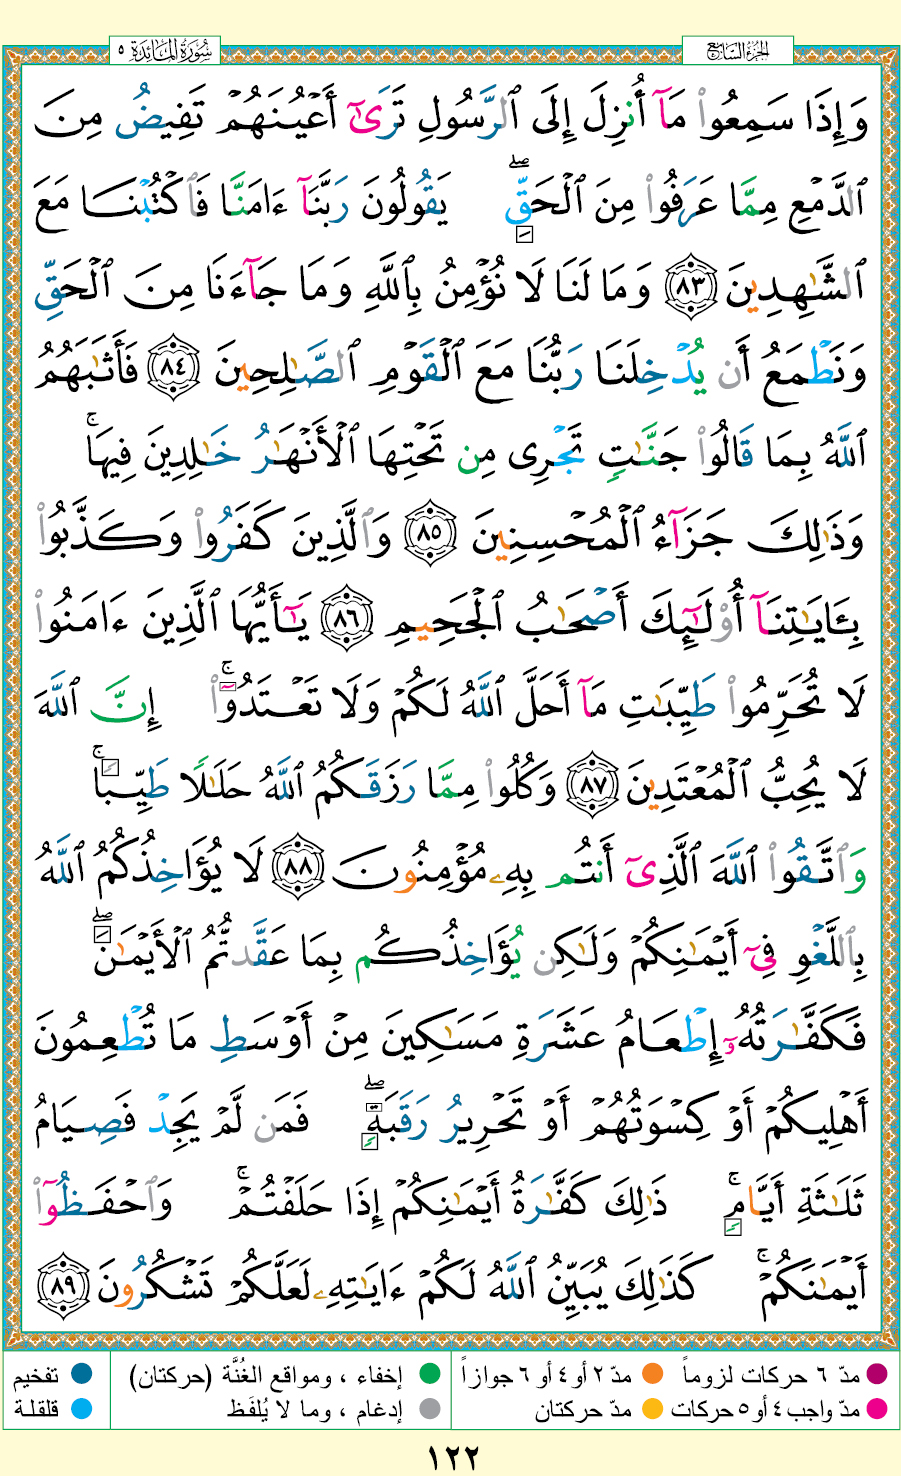 سُورَةُ المَائدَة ٥
الجزء السابع
وَإِذَا سَمِعُوا۟ مَآ أُنزِلَ إِلَى ٱلرَّسُولِ تَرَىٰٓ أَعْيُنَهُمْ تَفِيضُ مِنَ
ٱلدَّمْعِ مِمَّا عَرَفُوا۟ مِنَ ٱلْحَقِّ ۖ يَقُولُونَ رَبَّنَآ ءَامَنَّا فَٱكْتُبْنَا مَعَ
ٱلشَّـٰهِدِينَ ٨٣ وَمَا لَنَا لَا نُؤْمِنُ بِٱللَّهِ وَمَا جَآءَنَا مِنَ ٱلْحَقِّ
وَنَطْمَعُ أَن يُدْخِلَنَا رَبُّنَا مَعَ ٱلْقَوْمِ ٱلصَّـٰلِحِينَ ٨٤ فَأَثَـٰبَهُمُ
ٱللَّهُ بِمَا قَالُوا۟ جَنَّـٰتٍ تَجْرِى مِن تَحْتِهَا ٱلْأَنْهَـٰرُ خَـٰلِدِينَ فِيهَا ۚ
وَذَٰلِكَ جَزَآءُ ٱلْمُحْسِنِينَ ٨٥ وَٱلَّذِينَ كَفَرُوا۟ وَكَذَّبُوا۟
بِـَٔايَـٰتِنَآ أُو۟لَـٰٓئِكَ أَصْحَـٰبُ ٱلْجَحِيمِ ٨٦ يَـٰٓأَيُّهَا ٱلَّذِينَ ءَامَنُوا۟
لَا تُحَرِّمُوا۟ طَيِّبَـٰتِ مَآ أَحَلَّ ٱللَّهُ لَكُمْ وَلَا تَعْتَدُوٓا۟ ۚ إِنَّ ٱللَّهَ
لَا يُحِبُّ ٱلْمُعْتَدِينَ ٨٧ وَكُلُوا۟ مِمَّا رَزَقَكُمُ ٱللَّهُ حَلَـٰلًا طَيِّبًا ۚ
وَٱتَّقُوا۟ ٱللَّهَ ٱلَّذِىٓ أَنتُم بِهِۦ مُؤْمِنُونَ ٨٨ لَا يُؤَاخِذُكُمُ ٱللَّهُ
بِٱللَّغْوِ فِىٓ أَيْمَـٰنِكُمْ وَلَـٰكِن يُؤَاخِذُكُم بِمَا عَقَّدتُّمُ ٱلْأَيْمَـٰنَ ۖ
فَكَفَّـٰرَتُهُۥٓ إِطْعَامُ عَشَرَةِ مَسَـٰكِينَ مِنْ أَوْسَطِ مَا تُطْعِمُونَ
أَهْلِيكُمْ أَوْ كِسْوَتُهُمْ أَوْ تَحْرِيرُ رَقَبَةٍ ۖ فَمَن لَّمْ يَجِدْ فَصِيَامُ
ثَلَـٰثَةِ أَيَّامٍ ۚ ذَٰلِكَ كَفَّـٰرَةُ أَيْمَـٰنِكُمْ إِذَا حَلَفْتُمْ ۚ وَٱحْفَظُوٓا۟
أَيْمَـٰنَكُمْ ۚ كَذَٰلِكَ يُبَيِّنُ ٱللَّهُ لَكُمْ ءَايَـٰتِهِۦ لَعَلَّكُمْ تَشْكُرُونَ ٨٩
مدّ ٦ حركات لزوماً مدّ ٢ أو ٤ أو ٦ جوازاً إخفاء ، ومواقع الغُنَّة (حركتان) تفخيم
مدّ واجب ٤ أو ٥ حركات مدّ حركتان إدغام ، وما لا يُلفَظ قلقلة
١٢٢